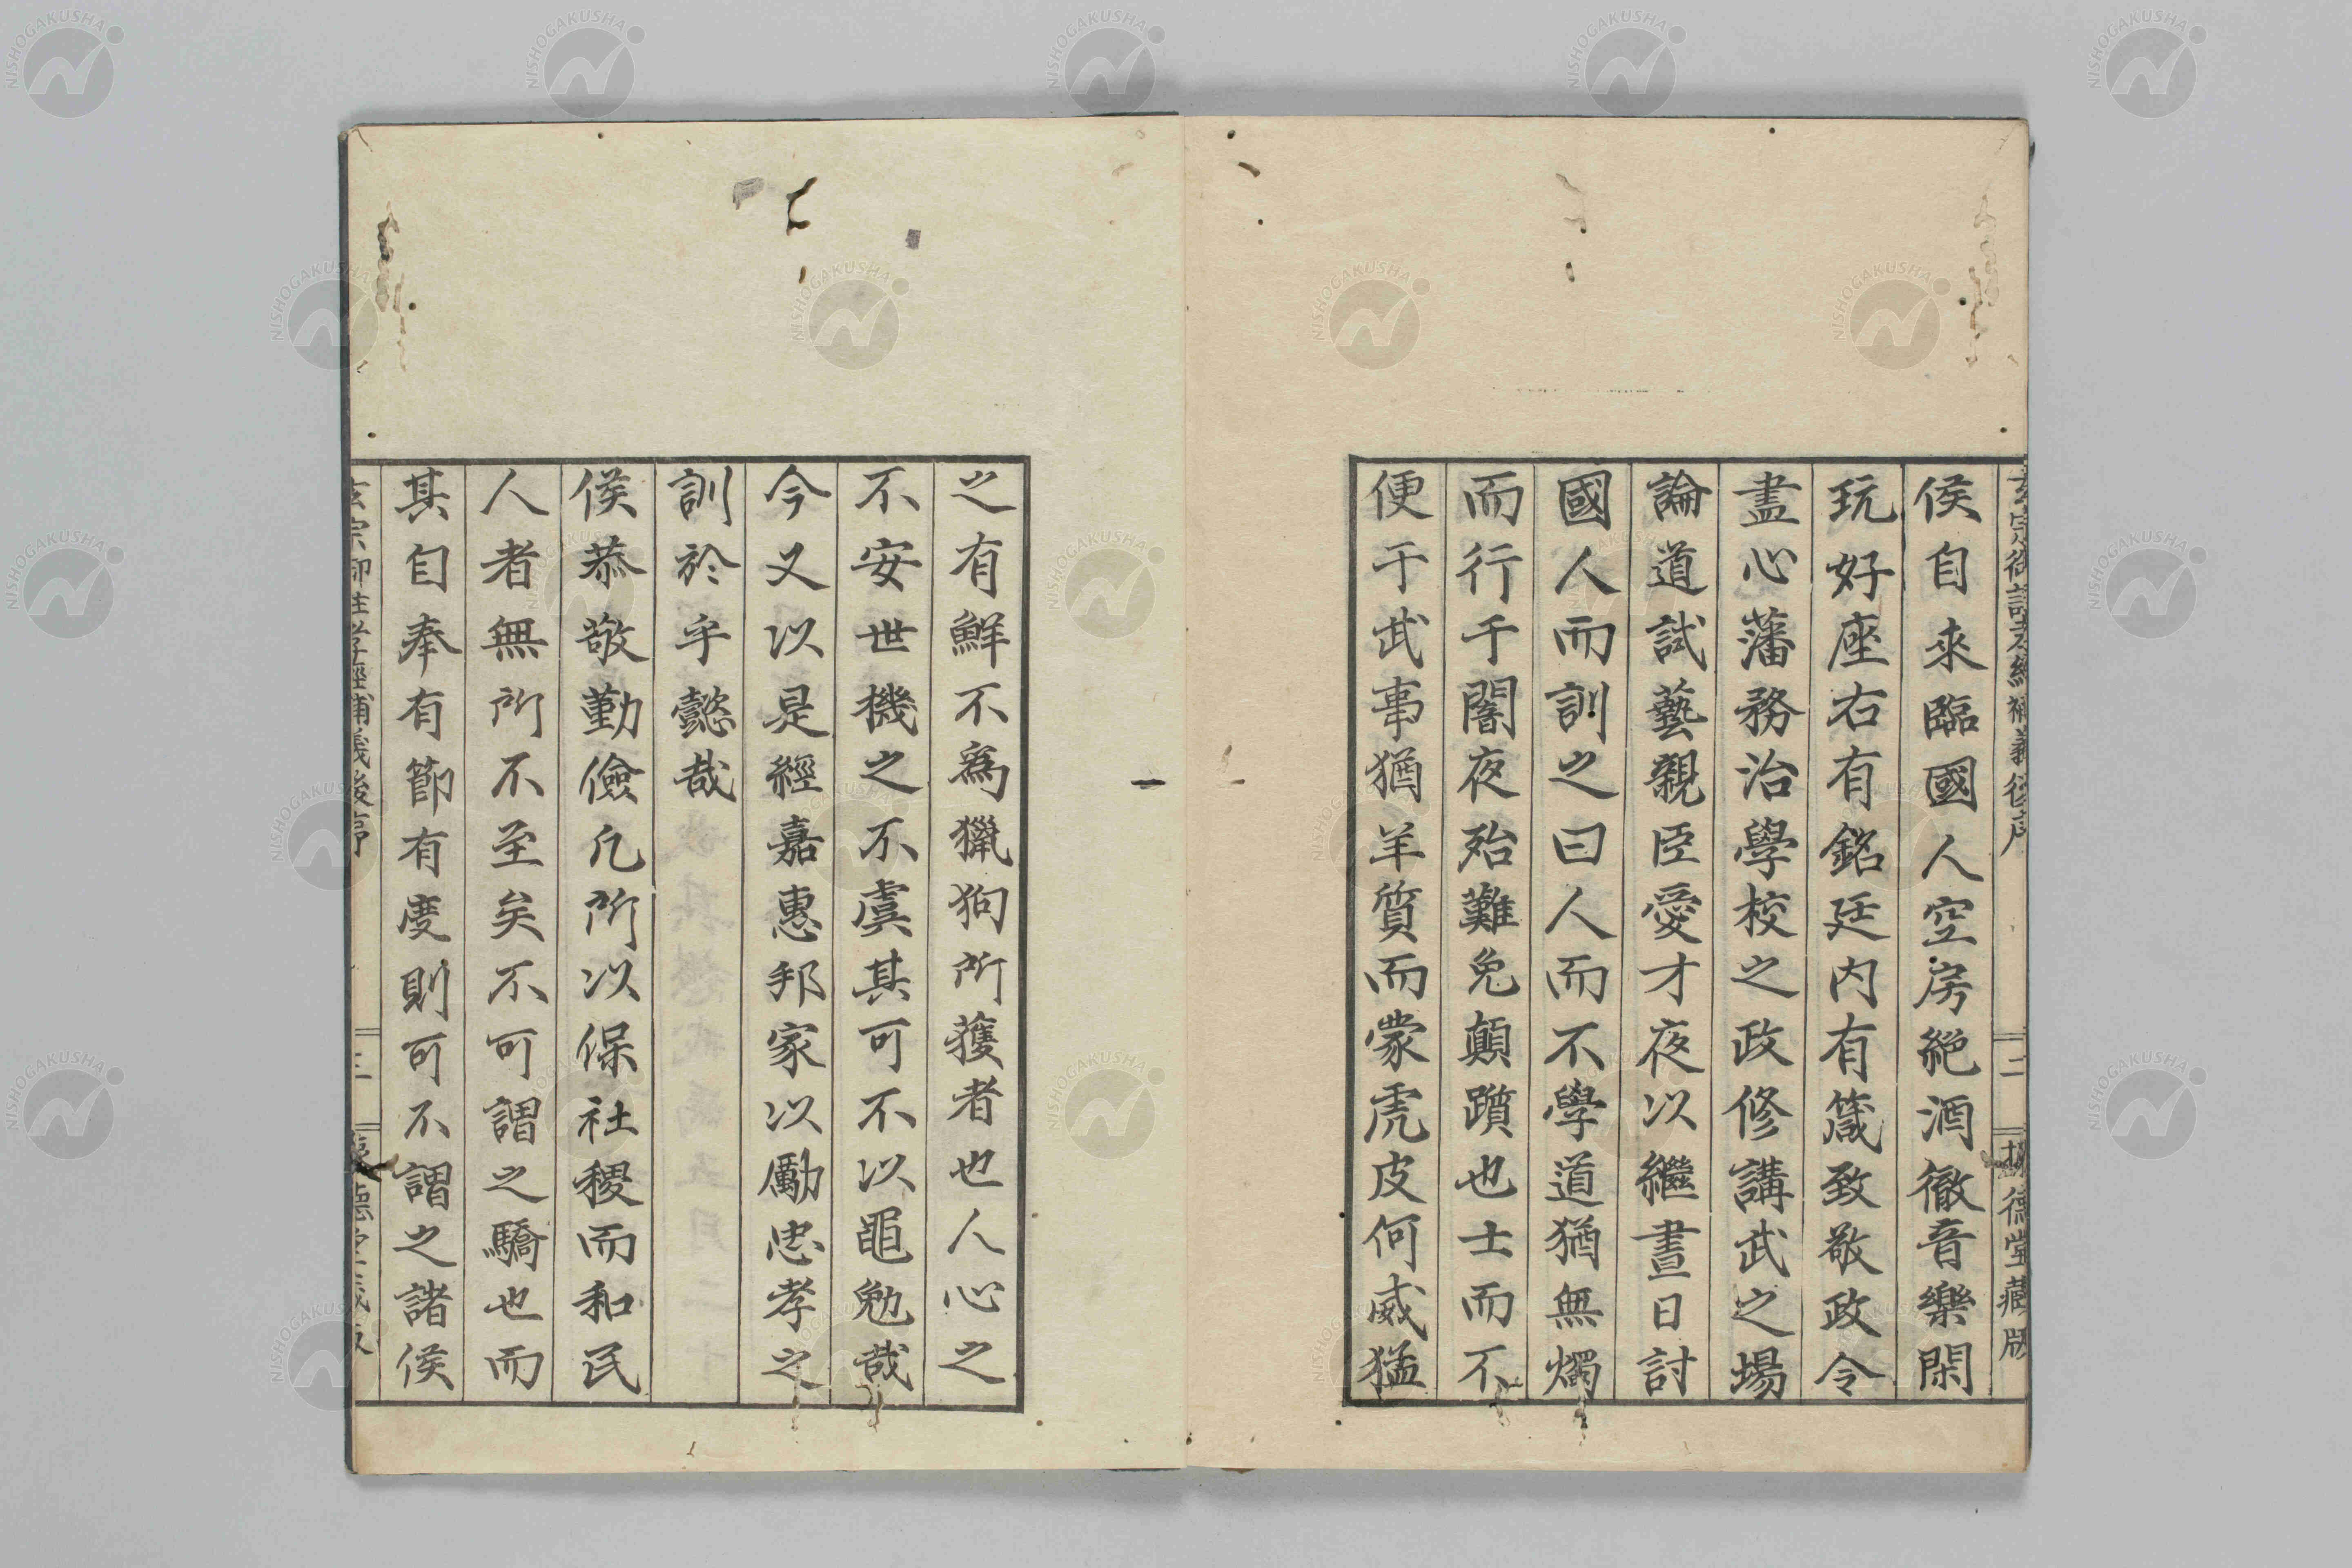 侯自來臨國人空房絕酒徹音樂閑
玩好座右有銘廷内有箴致敬政令
盡心藩務治學校之政修講武之場
論道試藝親臣愛才夜以繼晝日討
國人而訓之曰人而不學道猶無燭
而行于闇夜殆難免顛躓也士而不
便于武事猶羊質而蒙虎皮何威猛
之有鮮不爲獵狗所獲者也人心之
不安世機之不虞其可不以黽勉哉
今又以是經嘉惠邦家以勵忠孝之
訓於乎懿哉
侯恭敬勤儉凡所以保社稷而和民
人者無所不至矣不可謂之驕也而
其自奉有節有度則可不謂之諸侯
NISHOGAKUSHA